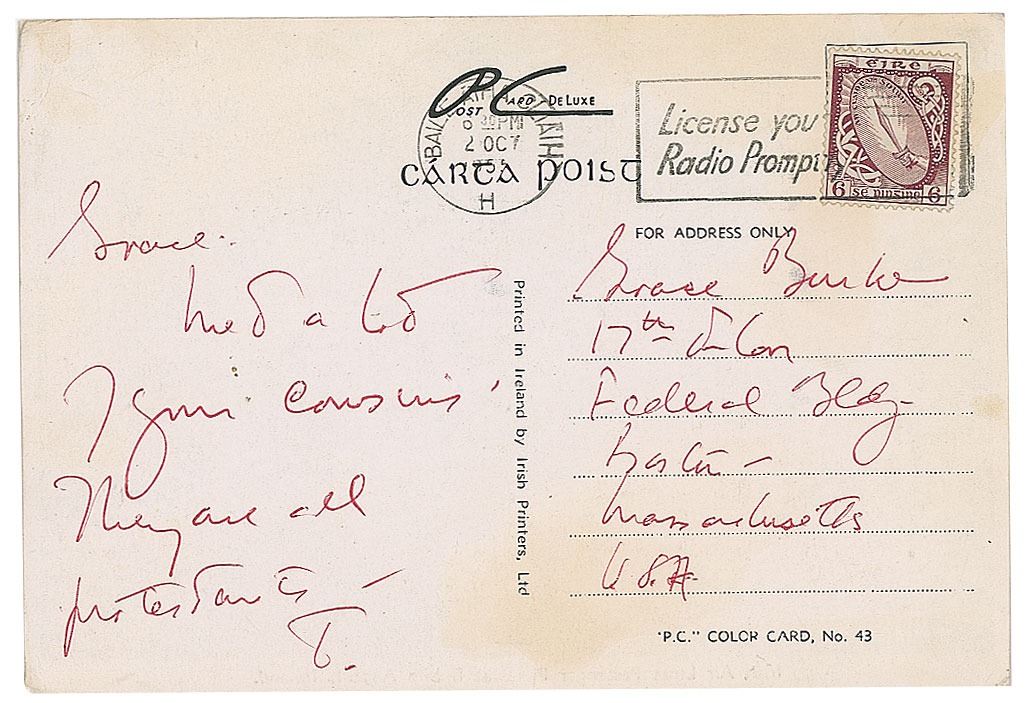 PC
POST CARD - DE LUXE
BAILE ATHA CLIATH
6 30 PM
2 OCT
H
License you
Radio Prompt
éire
6 sé pinsine 6
CARTA POIST
FOR ADDRESS ONLY
Grace.
Met a lot
of your cousins
They are all
protestants -
J.
Printed in Ireland by Irish Printers, Ltd
Grace Burke
17th Floor
Federal Bldg.
Boston -
Massachusetts
U.S.A.
"P.C." COLOR CARD, No. 43